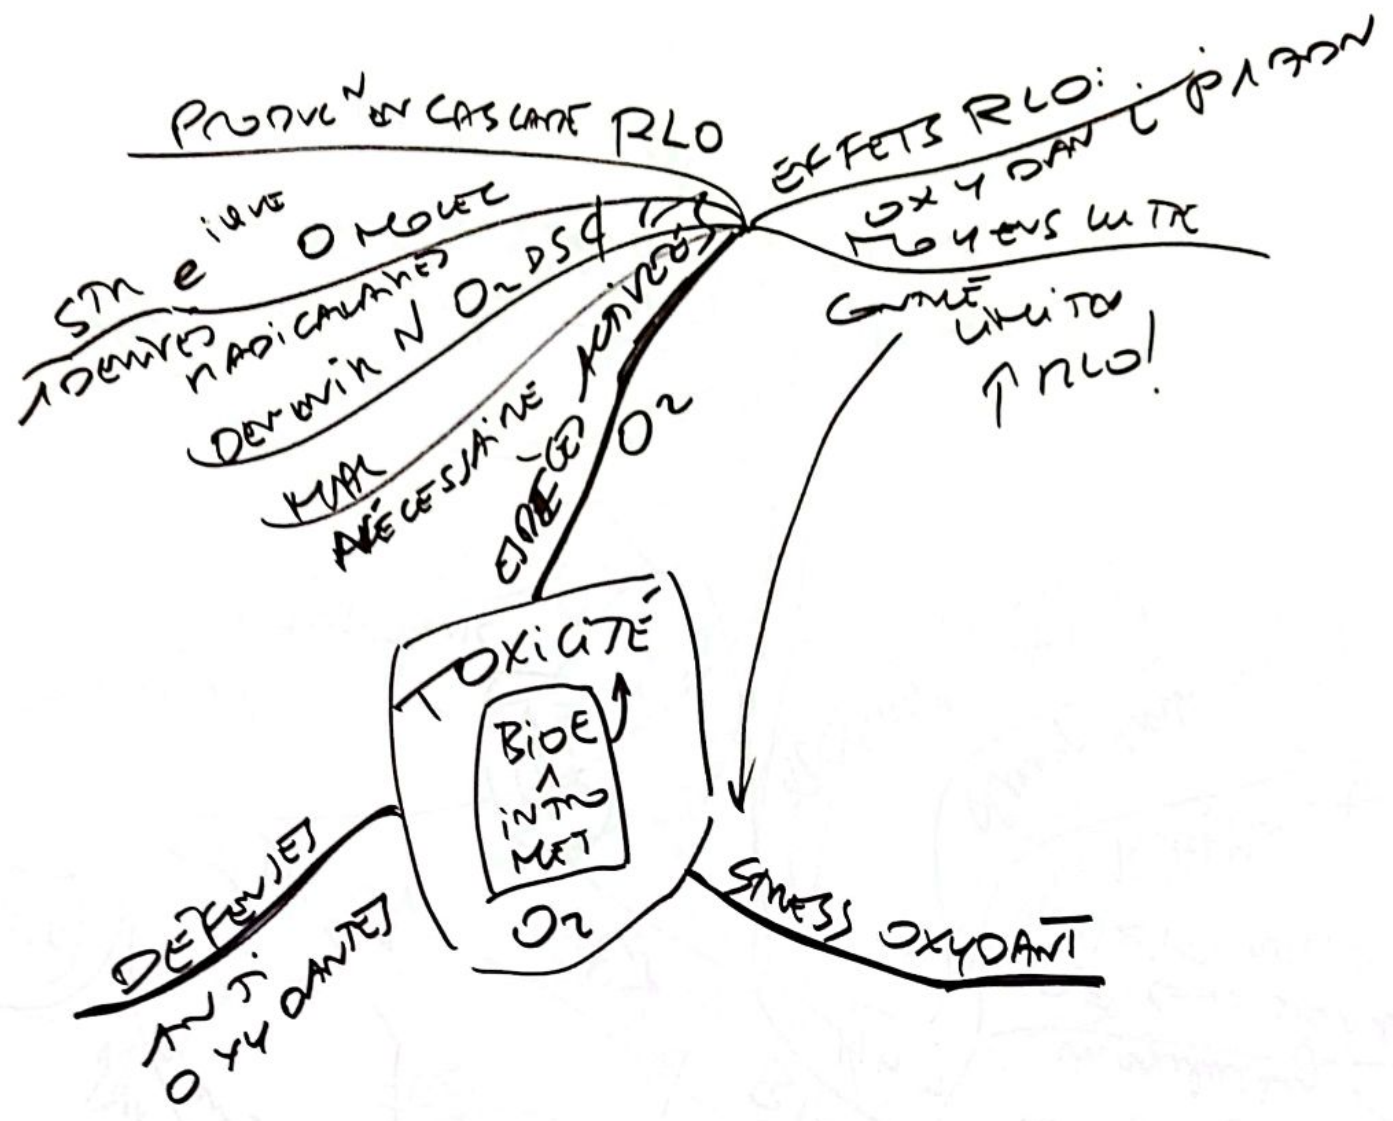 PRODUC^N EN CASCADE RLO
STR e^ique O MOLEC
DÉRIVÉS
RADICALAIRES
DEVENIR N O2 DS C
MAL
NÉCESSAIRE
ESPÈCES ACTIVÉES
O2
EFFETS RLO:
OXYDAN L P ADN
MOYENS LUTTE
CONTRÉ
LIMITER
↑ RLO!
TOXICITÉ
BIOE
INTRO
MET
O2
DÉFENSES
ANTI
OXYDANTES
STRESS OXYDANT